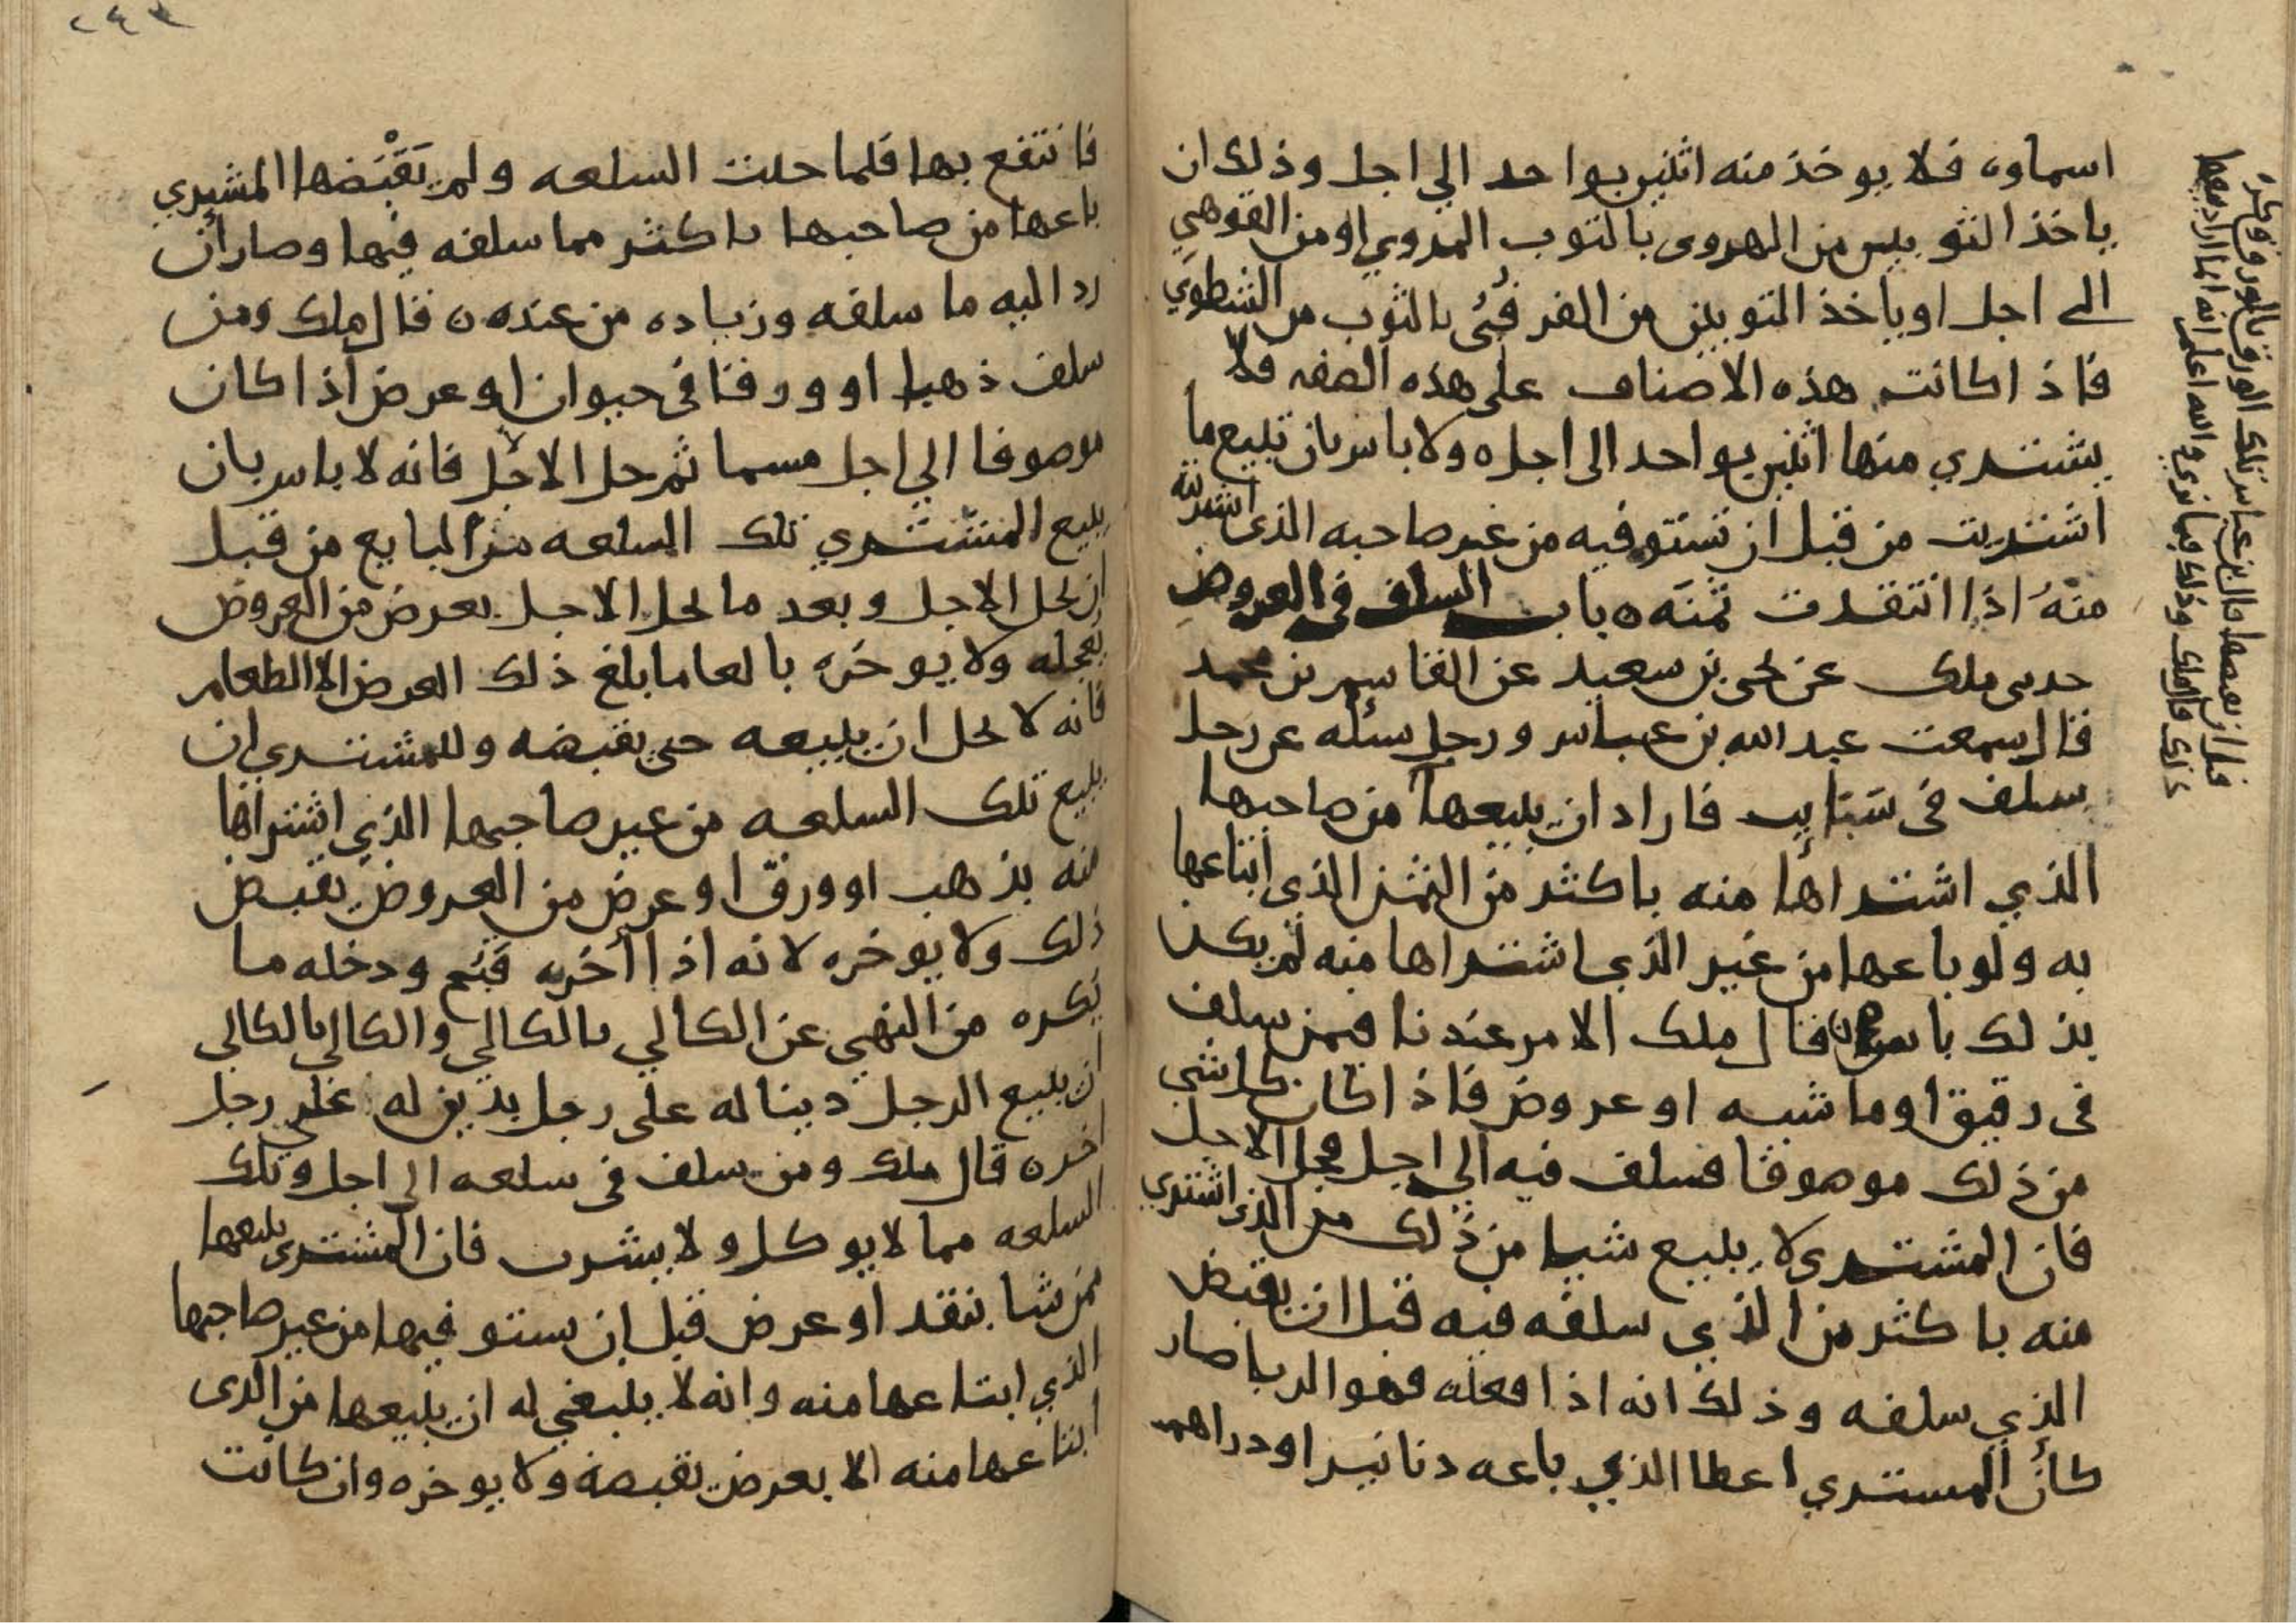 اسماوه فلا يوخذ منه اثنين بواحد الي اجل وذلك ان
ياخذ الثوبين من الهروى بالثوب المروي او من القوهي
الى اجل او ياخذ الثوبين من الفرقبي بالثوب من الشطوي
فاذا كانت هذه الاصناف على هذه الصفه فلا
يشتري منها اثنين بواحد الى اجل ه ولا باس بان تبيع ما
اشتريت من قبل ان تستوفيه من غير صاحبه الذى اشتريته
منهُ اذا انتقدت ثمنَه ه باب السلف فى العروض
حدثنى ملك عن يحيى بن سعيد عن القاسم بن محمد
قال سمعت عبد الله بن عباس ورجل سئله عن رجل
سلف فى سَبَايِب فاراد ان يبيعها من صاحبها
الذي اشتراها منه باكثر من الثمن الذى ابتاعها
به ولو باعها من غير الذي اشتراها منه لم يكن
بذلك باس قال ملك الامر عندنا فيمن سلف
فى رقيق او ماشيه او عروض فاذا كان كل شي
من ذلك موصوفا فسلف فيه الي اجل فحل الاجل
فان المشترى لا يبيع شيا من ذلك من الذى اشتري
منه باكثر من الذي سلفه فيه قبل ان يقبض
الذي سلفه وذلك انه اذا فعله فهو الربا صار
كأن المستري اعطا الذي باعه دنانير او دراهم
قبل ان يقبضها قال ابن عباس تلك الورق بالورق وكره
ذلك قال ملك وذلك فيما نري والله اعلم انه انما اراد بيعها
فانتفع بها فلما حلت السلعه ولم يَقْبَضها المشيري
باعها من صاحبها باكثر مما سلفه فيها وصار ان
رد اليه ما سلفه وزياده من عنده ه قال ملك ومن
سلف ذهبا او ورقا فى حيوان او عرض اذا كان
موصوفا الي اجل مسما ثم حل الاجل فانه لا باس بان
يبيع المشتري تلك السلعه من البايع من قبل
ان يحل الاجل وبعد ما يحل الاجل بعرض من العروض
يعجله ولا يوخره بالعا ما بلغ ذلك العرض الا الطعام
فانه لا يحل ان يبيعه حتى يقبضه وللمشتري ان
يبيع تلك السلعه من غير صاحبها الذي اشتراها
منه بذهب او ورق او عرض من العروض يقبض
ذلك ولا يوخره لانه اذا أخره قبُح ودخله ما
يكره من النهي عن الكالي بالكالي والكالي بالكالي
ان يبيع الرجل دينا له على رجل بدين له على رجل
اخر ه قال ملك ومن سلف فى سلعه الى اجل وتلك
السلعه مما لا يوكل ولا يشرب فان المشترى يبيعها
ممن شا بنقد او عرض قبل ان يستوفيها من غير صاحبها
الذي ابتاعها منه وانه لا ينبغي له ان يبيعها من الذى
ابتاعها منه الا بعرض يقبضه ولا يوخره وان كانت